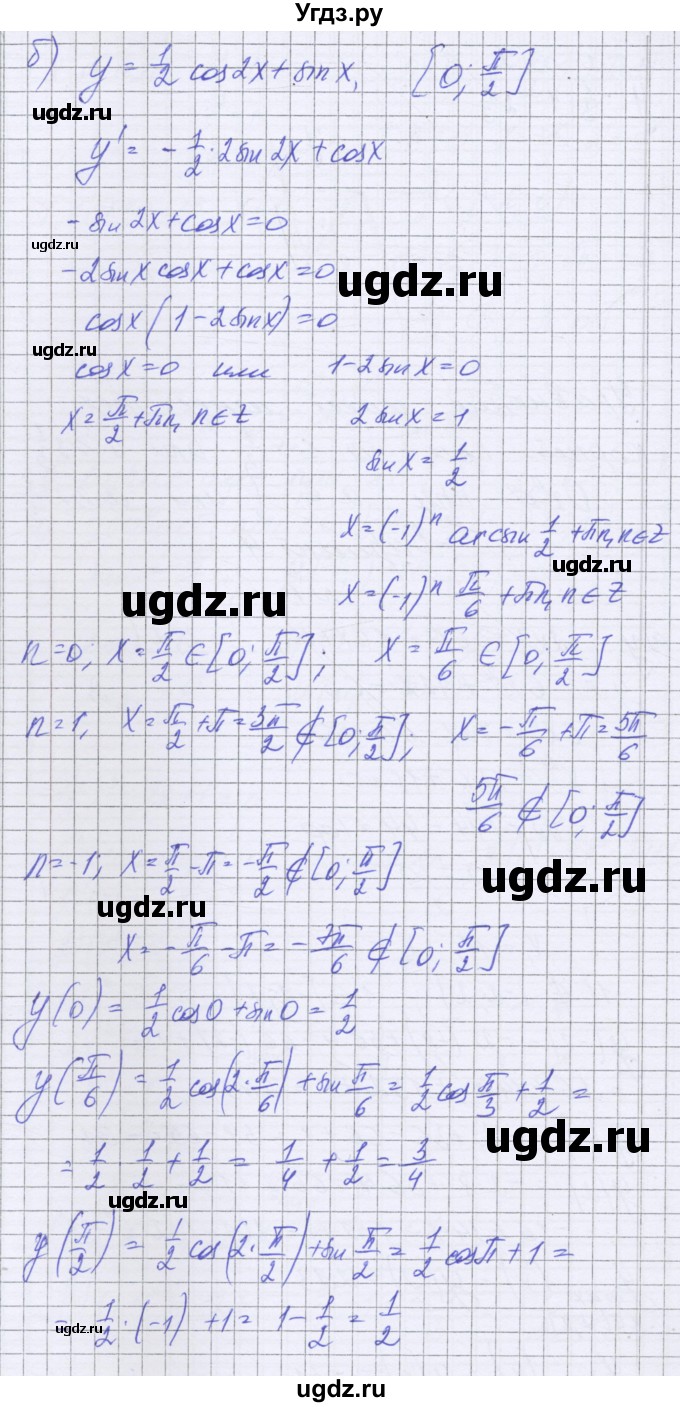 Угдз.ру
б) y = 1/2 cos2x + sin x, [0; π/2]
ugdz.ru
y' = - 1/2 · 2sin 2x + cosx
- sin 2x + cosx = 0
ugdz.ru
-2sinx cosx + cosx = 0
ugdz.ru
cosx (1 - 2sinx) = 0
ugdz.ru
cosx = 0 или 1 - 2sinx = 0
x = π/2 + πn, n ∈ Z 2sinx = 1
sinx = 1/2
x = (-1)^n arcsin 1/2 + πn, n ∈ Z
ugdz.ru
x = (-1)^n π/6 + πn, n ∈ Z
ugdz.ru
n = 0; x = π/2 ∈ [0; π/2]; x = π/6 ∈ [0; π/2]
n = 1, x = π/2 + π = 3π/2 ∉ [0; π/2]; x = - π/6 + π = 5π/6
ugdz.ru
5π/6 ∉ [0; π/2]
n = -1; x = π/2 - π = - π/2 ∉ [0; π/2]
ugdz.ru
ugdz.ru
x = - π/6 - π = - 7π/6 ∉ [0; π/2]
y(0) = 1/2 cos0 + sin0 = 1/2
y(π/6) = 1/2 cos(2 · π/6) + sin π/6 = 1/2 cos π/3 + 1/2 =
ugdz.ru
= 1/2 · 1/2 + 1/2 = 1/4 + 1/2 = 3/4
ugdz.ru
y(π/2) = 1/2 cos(2 · π/2) + sin π/2 = 1/2 cosπ + 1 =
= 1/2 · (-1) + 1 = 1 - 1/2 = 1/2
ugdz.ru
ugdz.ru